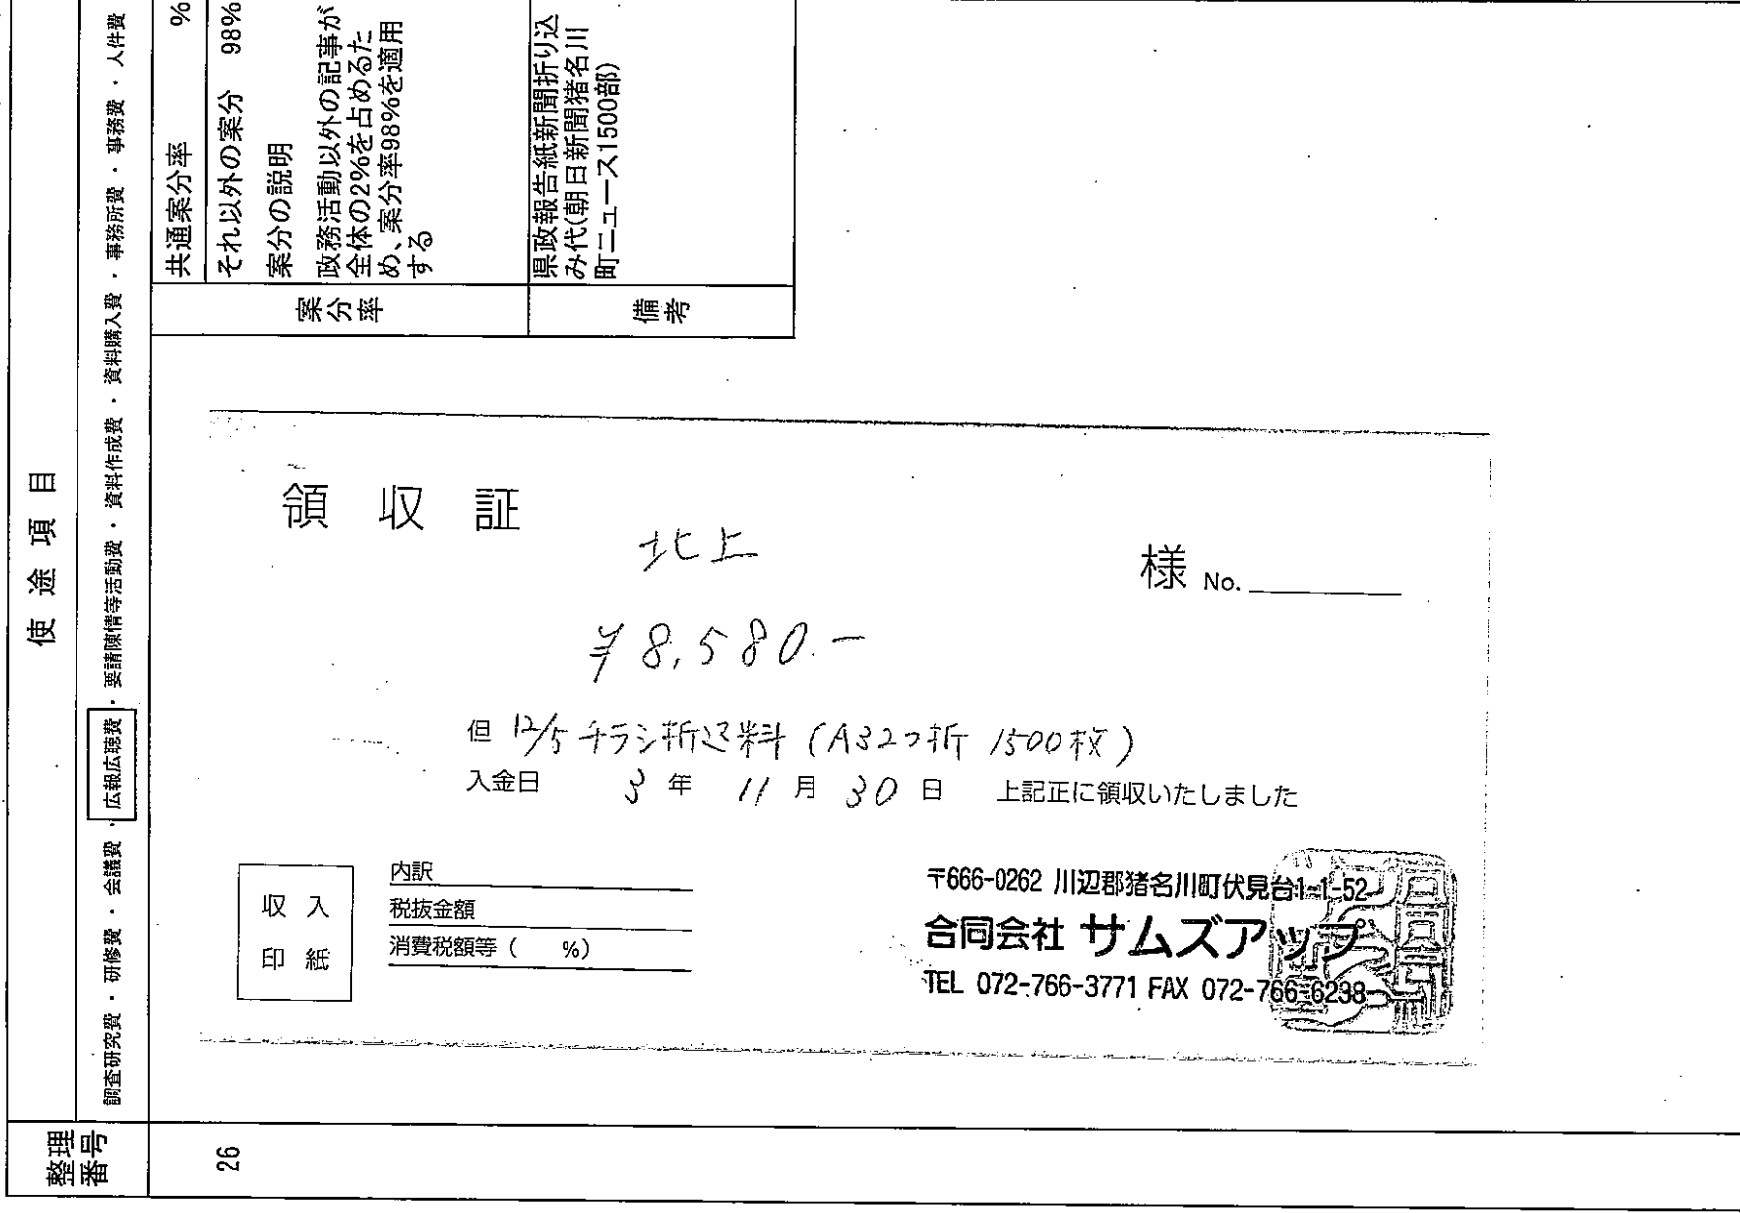 使途項目
調査研究費・研修費・会議費・広報広聴費・要請陳情等活動費・資料作成費・資料購入費・事務所費・事務費・人件費
整理
番号
26
案分率
共通案分率 %
それ以外の案分 98%
案分の説明
政務活動以外の記事が
全体の2%を占めるた
め、案分率98%を適用
する
備考
県政報告紙新聞折り込
み代(朝日新聞猪名川
町ニュース1500部)
領収証
北上 様 No.
¥8,580.-
但 12/5 チラシ折込料 (A32つ折 1500枚)
入金日 3年 11月 30日 上記正に領収いたしました
収入
印紙
内訳
税抜金額
消費税額等( %)
〒666-0262 川辺郡猪名川町伏見台1-1-52
合同会社 サムズアップ
TEL 072-766-3771 FAX 072-766-6238